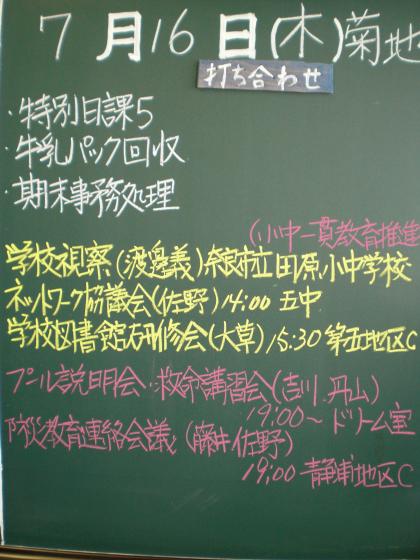 7月16日(木)菊地
打ち合わせ
・特別日課5
・牛乳パック回収
・期末事務処理
(小中一貫教育推進
学校視察(渡邊義)奈良市立田原小中学校
ネットワーク協議会(佐野)14:00 五中
学校図書館研修会(大草)15:30 第五地区C
プール説明会・救命講習会(吉川、丹山)
19:00〜ドリーム室
防災教育連絡会議(藤井佐野)
19:00 静浦地区C